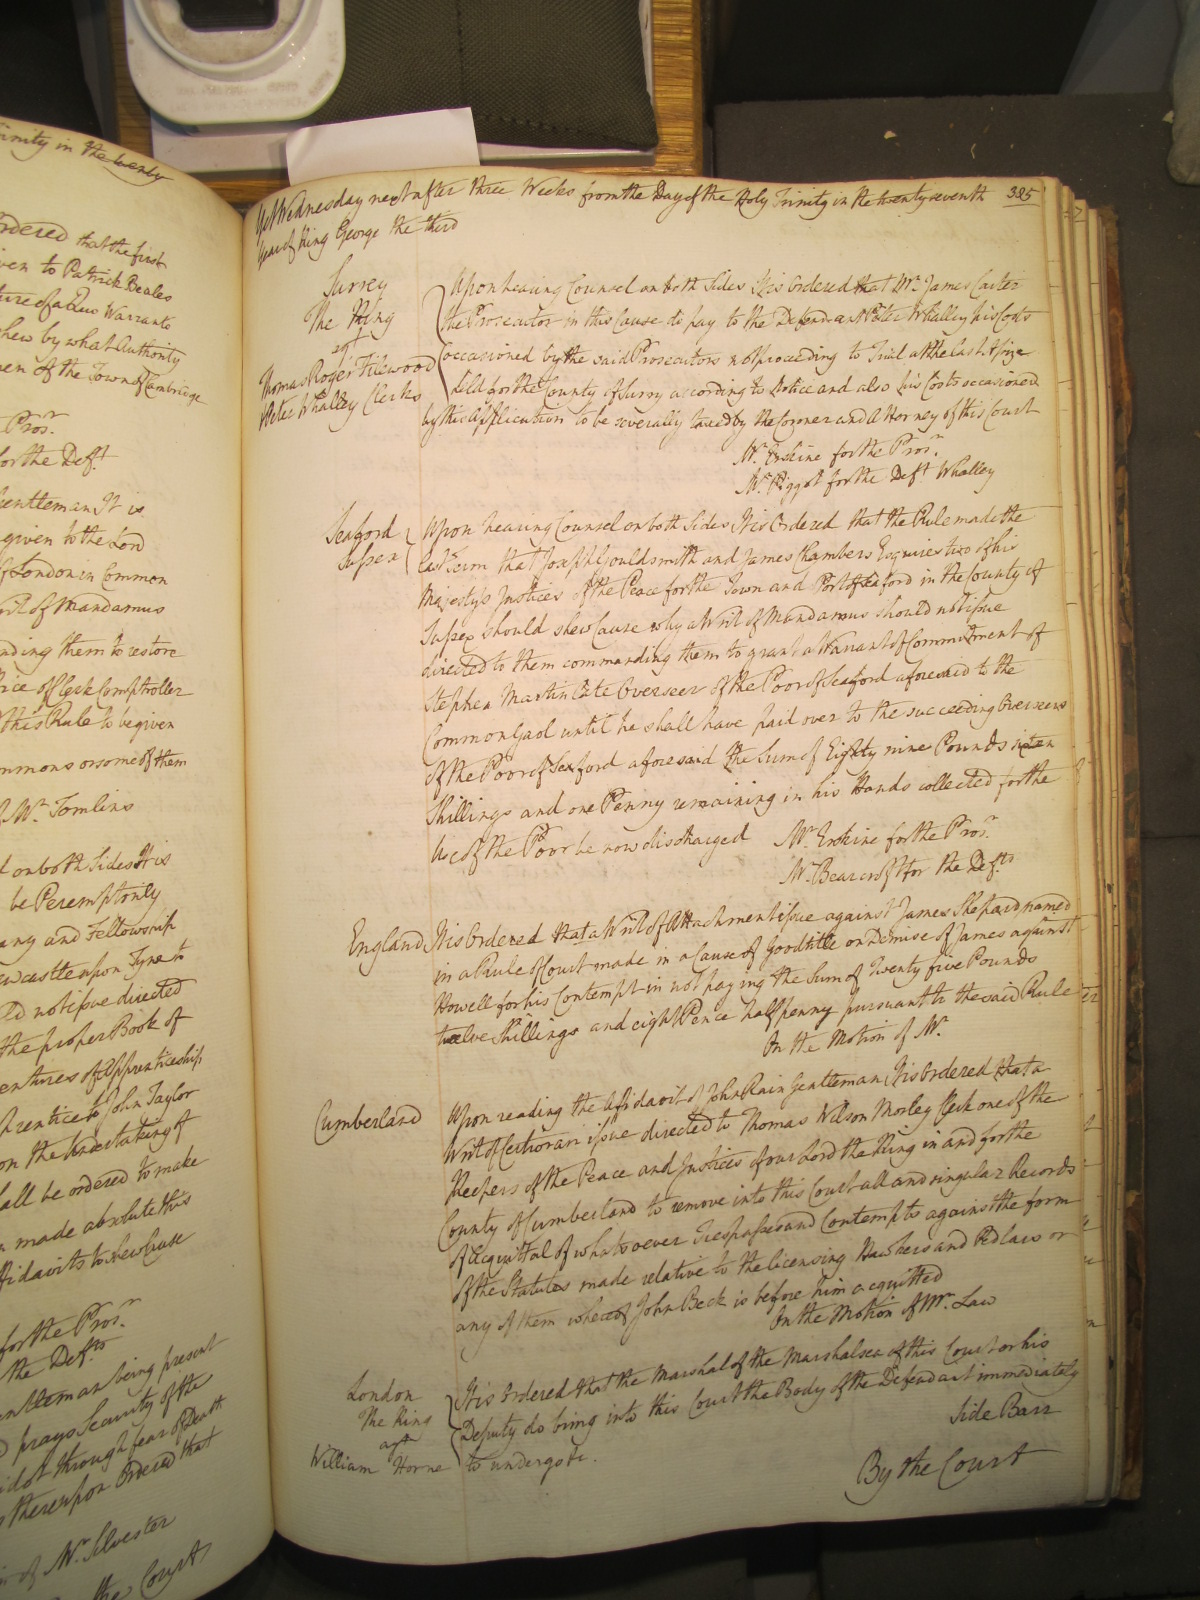 Trinity in the twenty
ordered that the first
given to Patrick Beales
nature of a Quo Warranto
shew by what Authority
men of the Town of Cambridge
Prosr.
for the Deft.
Gentleman It is
given to the Lord
of London in Common
Writ of Mandamus
nding them to restore
fice of Clerk Comptroller
this Rule to be given
ommons or some of them
Mr. Tomlins
l on both Sides It is
be Peremptorily
any and Fellowship
ewcastle upon Tyne to
ld not issue directed
the proper Book of
entures of Apprenticeship
prentice to John Taylor
on the undertaking of
hall be ordered to make
made absolute this
ffidavits to shew Cause
for the Prosr.
the Defts.
entleman being present
prays Security of the
through fear of Death
thereupon Ordered that
of Mr. Silvester
the Court
Yet Wednesday next after three Weeks from the Day of the Holy Trinity in the twenty seventh 385
Year of King George the third
Surrey
The King
agt
Thomas Roger Filewood
Peter Whalley Clerks
Upon hearing Counsel on both Sides It is Ordered that Mr. James Carter
the Prosecutor in this Cause do pay to the Defendant Peter Whalley his Costs
occasioned by the said Prosecutors not proceeding to Trial at the last Assizes
held for the County of Surry according to Notice and also his Costs occasioned
by this Application to be severally taxed by the Coroner and Attorney of this Court
Mr. Erskine for the Prosr.
Mr. Piggot for the Deft Whalley
Seaford
Sussex
Upon hearing Counsel on both Sides It is Ordered that the Rule made the
last Term that Joseph Gouldsmith and James Chambers Esquires two of his
Majesty's Justices of the Peace for the Town and Port of Seaford in the County of
Sussex should shew Cause why a Writ of Mandamus should not issue
directed to them commanding them to grant a Warrant of Commitment of
Stephen Martin late Overseer of the Poor of Seaford aforesaid to the
Common Gaol until he shall have paid over to the succeeding Overseers
of the Poor of Seaford aforesaid the Sum of Eighty nine Pounds sixteen
Shillings and one Penny remaining in his Hands collected for the
Use of the Poor be now discharged
Mr. Erskine for the Prosr.
Mr. Bearcroft for the Defts
England
It is Ordered that a Writ of Attachment issue against James Shepard named
in a Rule of Court made in a Cause of Goodtitle on Demise of James against
Howell for his Contempt in not paying the Sum of Twenty five Pounds
twelve Shillings and eight Pence halfpenny pursuant to the said Rule
On the Motion of Mr.
Cumberland
Upon reading the Affidavit of John Rain Gentleman It is Ordered that a
Writ of Certiorari issue directed to Thomas Wilson Morley Clerk one of the
Keepers of the Peace and Justices of our Lord the King in and for the
County of Cumberland to remove into this Court all and singular Records
of Acquittal of whatsoever Trespasses and Contempts against the form
of the Statutes made relative to the licensing Hawkers and Pedlars or
any of them whereof John Beck is before him acquitted
On the Motion of Mr. Law
London
The King
agt
William Horne
It is Ordered that the Marshal of the Marshalsea of this Court or his
Deputy do bring into this Court the Body of the Defendant immediately
to undergo &c.
Side Barr
By the Court